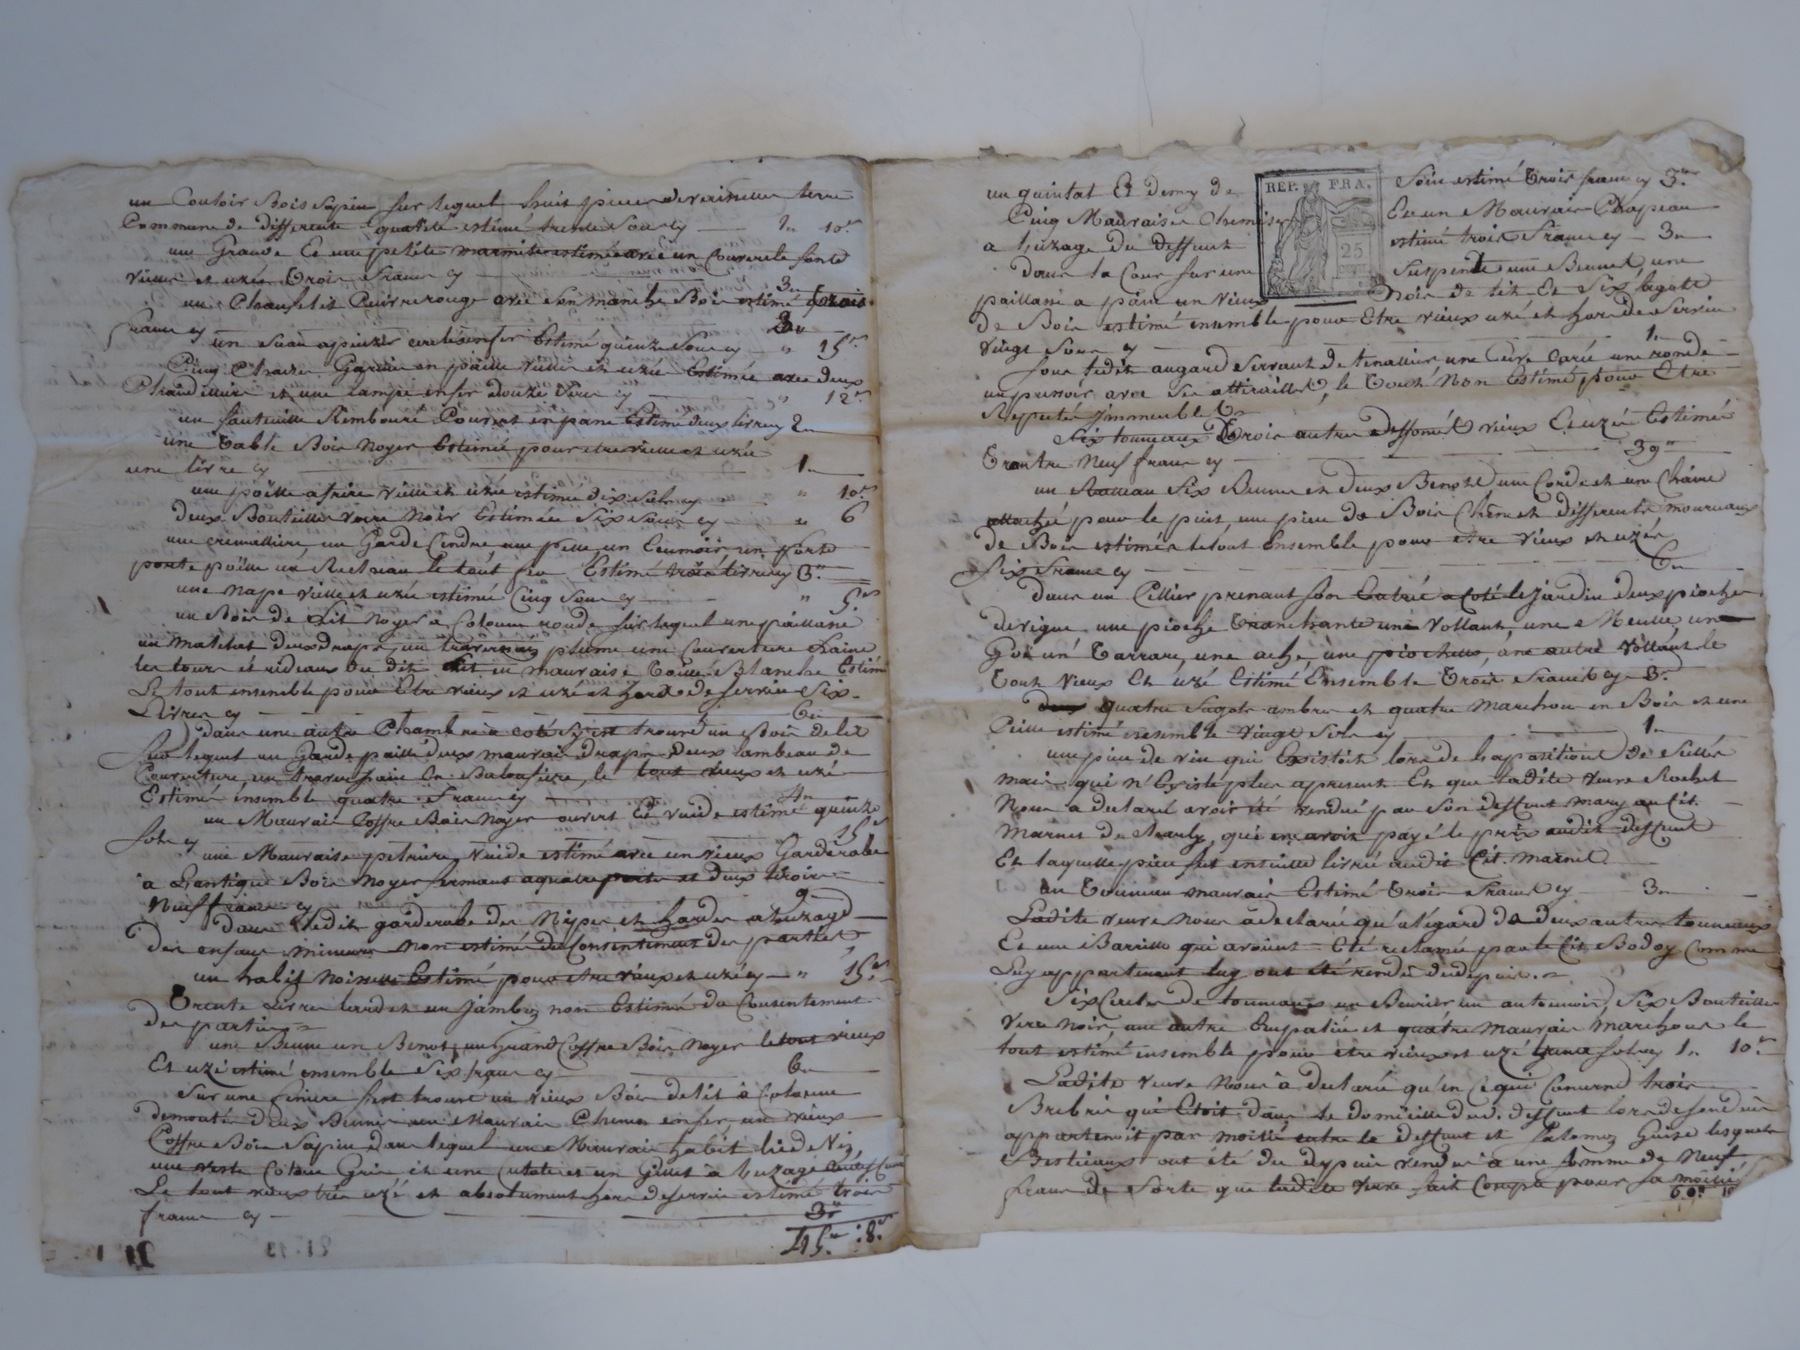 un Couloir Bois Sapin sur lequel huit pieces de Vaisselle terre
Commune de differente qualité estimé trente Sous cy 1.. 10.s
une Grande Et une petite marmite estimé avec un Couvercle fonte
Vieux et uzée Trois francs cy 3..
un Chaufelit Cuivre rouge avec son manche Bois estimé trois
francs cy 3..
un Seau apuizer cerclé enfer Estimé quinze Sous cy " 15.s
Cinq Chaizes Garnie en paille vielle et uzée Estimée avec deux
Chandelliers et une lampe enfer douze sous cy " 12.s
un fauteuille Rembouré Estimé deux livres cy 2..
une Table Bois Noyer Estimée pour etre vielle et uzée
une livre cy 1..
une poëlle afrire vielle et uzée estimé dix sols cy " 10.s
deux Bouteilles verre Noir Estimées Six Sous cy " 6
une cremalliere, un Garde Cendre, une pelle, un Ecumoir, un porte
poële un Rucheau le tout fer Estimé trois livres cy 3..
une nape vielle et uzée estimé Cinq Sous cy " 5.s
un Bois de Lit Noyer à Colonne ronde sur lequel une paillasse
un Matelat deux draps, un traversin plume une Couverture Laine
les tours et rideaux du dit lit en mauvaise Toille Blanche Estimé
Le tout ensemble pour Etre vieux et uzé et hors de service Six
Livres cy 6..
dans une autre Chambre à coté s'y est trouvé un Bois de lit
sur lequel un Garde paille deux mauvais draps deux lambeau de
Couverture, un traversin en Baloufiere, le tout vieux et uzé
Estimé ensemble quatre francs cy 4..
un Mauvais Coffre Bois Noyer ouvert Et vuide estimé quinze
sols cy 15.s
une Mauvaise petriere vuide estimé avec un vieux Garderobe
a Lantique Bois Noyer fermant a quatre portes et deux tiroirs
Neuf francs cy 9..
dans ledit garderobe des Nipes et hardes a luzage
des enfans mineurs non estimé du Consentement des parties
un habit Noir Estimé pour etre vieux et uzé cy " 15.s
Trente Livres lard et un Jambon non Estimé du Consentement
des parties
une Benne un Benot, un Grand Coffre Bois Noyer le tout vieux
Et uzé estimé ensemble Six francs cy 6..
Sur une finiere s'est trouvé un vieux Bois de lit à Colonne
demonté deux Bennes une Mauvais Chenet enfer, un vieux
Coffre Bois Sapin dans lequel un Mauvais habit
une veste Cotone Grise et une culote et un Gilet à luzage
Le tout vieux très uzé et absolument hors de service estimé trois
francs cy 3..
45.. : 8.s
un quintal Et demy de Foin estimé Trois francs cy 3..
Cinq Mauvaises Chemises Et un Mauvais Chapeau
a Luzage du deffunt estimé trois francs cy 3..
dans la Cour sur une Suspente une Bennet, une
paillasse a pain un vieux Bois de lit Et Six fagots
de Bois estimé ensemble pour Etre vieux uzé et hors de Service
Vingt Sous cy 1..
Sous ledit angard Servant de tenallier une Cuve Carée une ronde
un pressoir avec Ses attirailles, le Tout Non Estimé, pour Etre
Reputés Jmmeubles
Six touneaux Trois autres deffoncés vieux Et uzés Estimés
Trante Neuf francs cy 39..
un Rateau Six Bennes et deux Benots une Corde et une Chaine
attachée pour le puit, une piece de Bois Chene et differents mourceaux
de Bois estimés le tout Ensemble pour etre vieux et uzés
Six francs cy 6..
dans un Cellier prenant Son Entrée a coté le Jardin deux pioches
de vigne une pioche Tranchante une Vollant, une Meulle un
Goi une Tarrare, une ache, une piochette, une autre Vollant le
Tout Vieux Et uzé Estimé Ensemble Trois francs cy 3..
quatre Sagots ambres et quatre Marchons en Bois et une
Seille estimé ensemble Vingt Sols cy 1..
une piece de vin qui Existoit lors de Laposition de Sellés
mais qui n'Existe plus apresent Et que ladite Veuve Rochet
Nous a declaré avoir été vendue par Son deffunt mary au Cit.
Marnet de Neuly, qui en avoit payé le prix audit deffunt
Et laquelle piece fut ensuitte livrée audit Cit. Marnet
un Tonneau mauvais Estimé Trois francs cy 3..
Ladite veuve nous a declarée qu'a l'égard de deux autres touneaux
Et une Barrille qui avoient Eté reclamés par le Cit. Bodoy Comme
Luy appartenant luy ont été rendu du depuis
Six Cercles de touneaux un Benier un antonnoir, Six Bouteilles
Verre noir, une autre Empaliée et quatre mauvais marchous le
tout estimé ensemble pour etre vieux et uzé trente sols cy 1.. 10.s
Ladite veuve nous a declarée qu'en ce qui Concerne trois
Brebis qui Etoit dans le domicille dud. deffunt lors de son decès
appartenoit par moitié entre le deffunt et Palamoz Guise lesquels
Bestiaux ont été du depuis vendu a une Somme de Neuf
francs de Sorte que ladite veuve fait Compte pour sa moitié
REP. FRA.
25